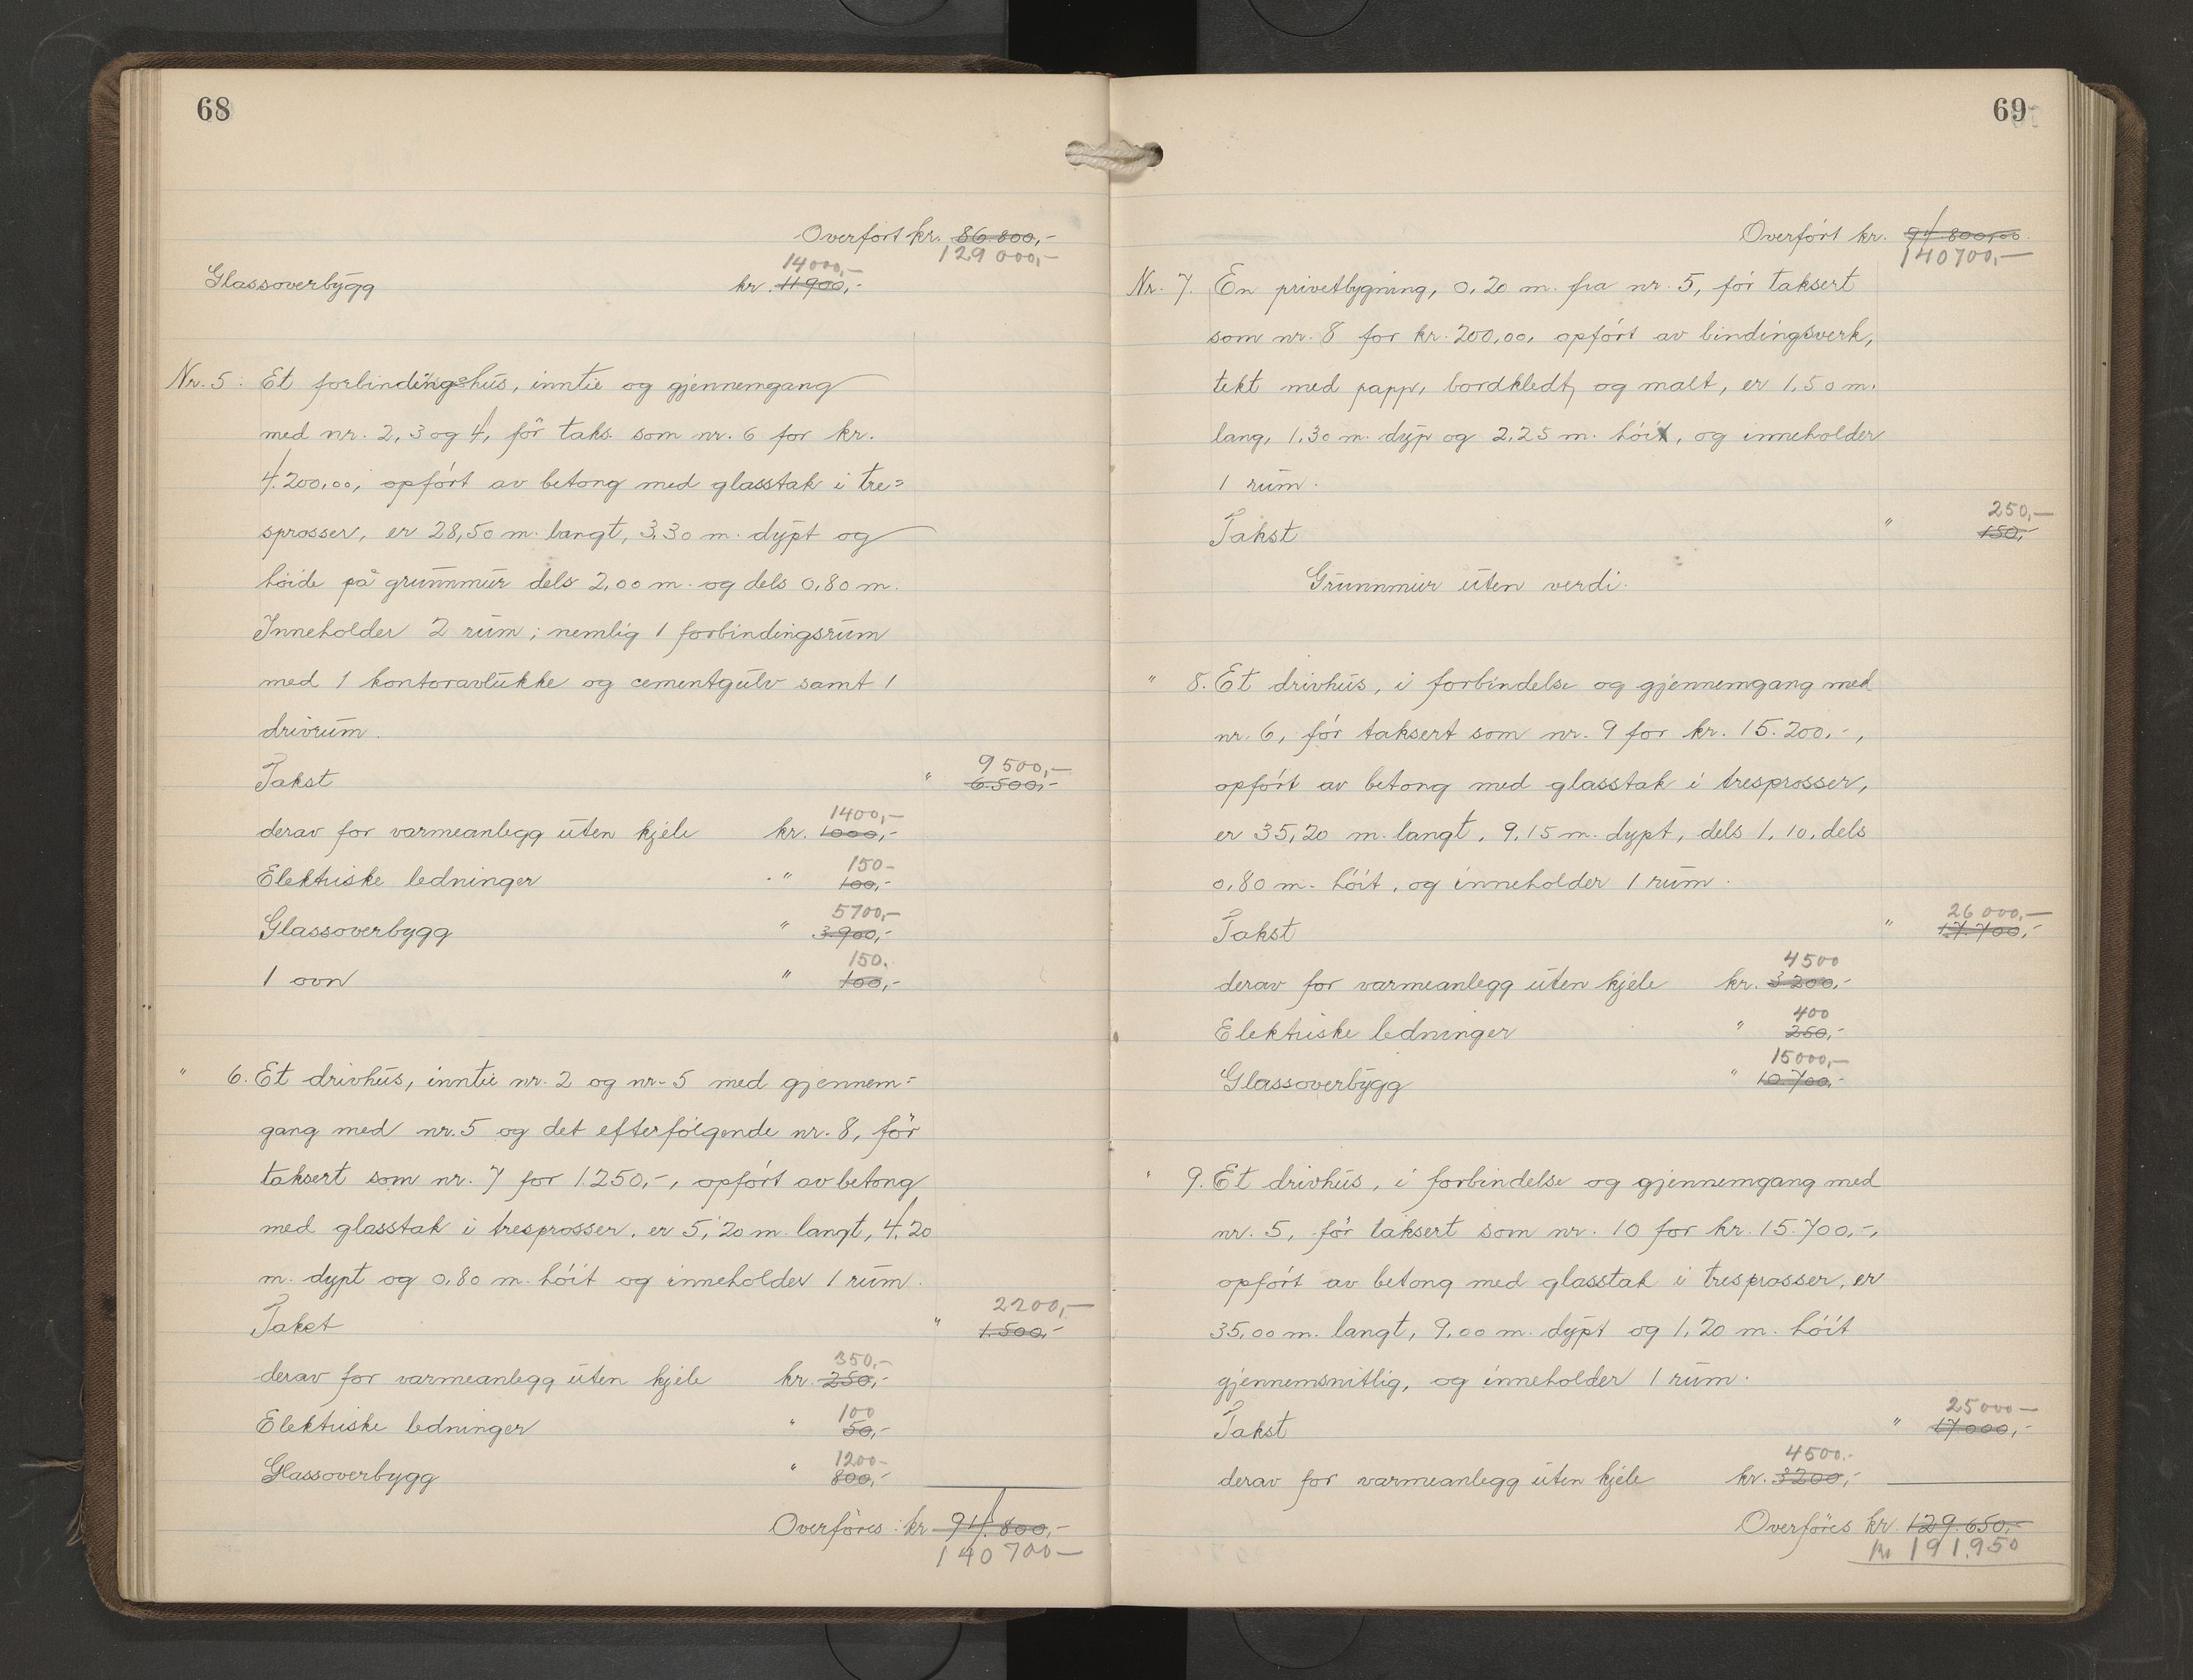 68
Overført kr. 86.800,-
129 000,-
14000,-
Glassoverbygg kr. 11900,-
Nr. 5. Et forbindingshus, inntil og gjennemgang
med nr. 2, 3 og 4, før taks. som nr. 6 for kr.
4.200,00, opført av betong med glasstak i tre=
sprosser, er 28,50 m. langt, 3.30 m. dypt og
høide på grunnmur dels 2,00 m. og dels 0,80 m.
Inneholder 2 rum; nemlig 1 forbindingsrum
med 1 kontoravlukke og cementgulv samt 1
drivrum.
9 500,-
Takst " 6.500,-
1400,-
derav for varmeanlegg uten kjele kr. 1000,-
150-
Elektriske ledninger " 100,-
5700,-
Glassoverbygg " 3.900,-
150.
1 ovn " 100,-
" 6. Et drivhus, inntil nr. 2 og nr. 5 med gjennem=
gang med nr. 5 og det efterfølgende nr. 8, før
taksert som nr. 7 for 1.250,-, opført av betong
med glasstak i tresprosser, er 5,20 m. langt, 4,20
m. dypt og 0,80 m. höit og inneholder 1 rum.
2200,-
Takst " 1.500,-
350,-
derav for varmeanlegg uten kjele kr. 250,-
100
Elektriske ledninger " 50,-
1200-
Glassoverbygg " 800,-
Overføres: kr 94.800,-
140 700-
69
Overført kr. 94.800,00.
140700,-
Nr. 7. En privetbygning, 0,20 m. fra nr. 5, før taksert
som nr. 8 for kr. 200,00, opført av bindingsverk,
tekt med papp, bordkledt, og malt, er 1,50 m.
lang, 1,30 m. dyp og 2,25 m. høi, og inneholder
1 rum.
250,-
Takst " 150,-
Grunnmur uten verdi.
" 8. Et drivhus, i forbindelse og gjennemgang med
nr. 6, før taksert som nr. 9 for kr. 15.200,-,
opført av betong med glasstak i tresprosser,
er 35,20 m. langt, 9,15 m. dypt, dels 1,10, dels
0,80 m. höit, og inneholder 1 rum.
26 000,-
Takst " 17.700,-
4500
derav for varmeanlegg uten kjele kr. 3200,-
400
Elektriske ledninger " 250,-
15000,-
Glassoverbygg " 10.700,-
" 9. Et drivhus, i forbindelse og gjennemgang med
nr. 5, før taksert som nr. 10 for kr. 15.700,-,
opført av betong med glasstak i tresprosser, er
35,00 m. langt, 9,00 m. dypt og 1,20 m. höit
gjennemsnitlig, og inneholder 1 rum.
25000-
Takst " 17000,-
4500.-
derav for varmeanlegg uten kjele kr. 3200,-
Overføres kr. 129.650,-
kr 191.950